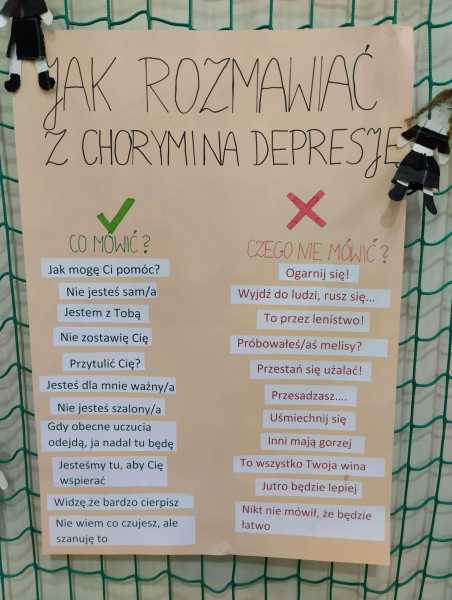 JAK ROZMAWIAĆ
Z CHORYMI NA DEPRESJĘ
CO MÓWIĆ?
Jak mogę Ci pomóc?
Nie jesteś sam/a
Jestem z Tobą
Nie zostawię Cię
Przytulić Cię?
Jesteś dla mnie ważny/a
Nie jesteś szalony/a
Gdy obecne uczucia
odejdą, ja nadal tu będę
Jesteśmy tu, aby Cię
wspierać
Widzę że bardzo cierpisz
Nie wiem co czujesz, ale
szanuję to
CZEGO NIE MÓWIĆ?
Ogarnij się!
Wyjdź do ludzi, rusz się...
To przez lenistwo!
Próbowałeś/aś melisy?
Przestań się użalać!
Przesadzasz....
Uśmiechnij się
Inni mają gorzej
To wszystko Twoja wina
Jutro będzie lepiej
Nikt nie mówił, że będzie
łatwo